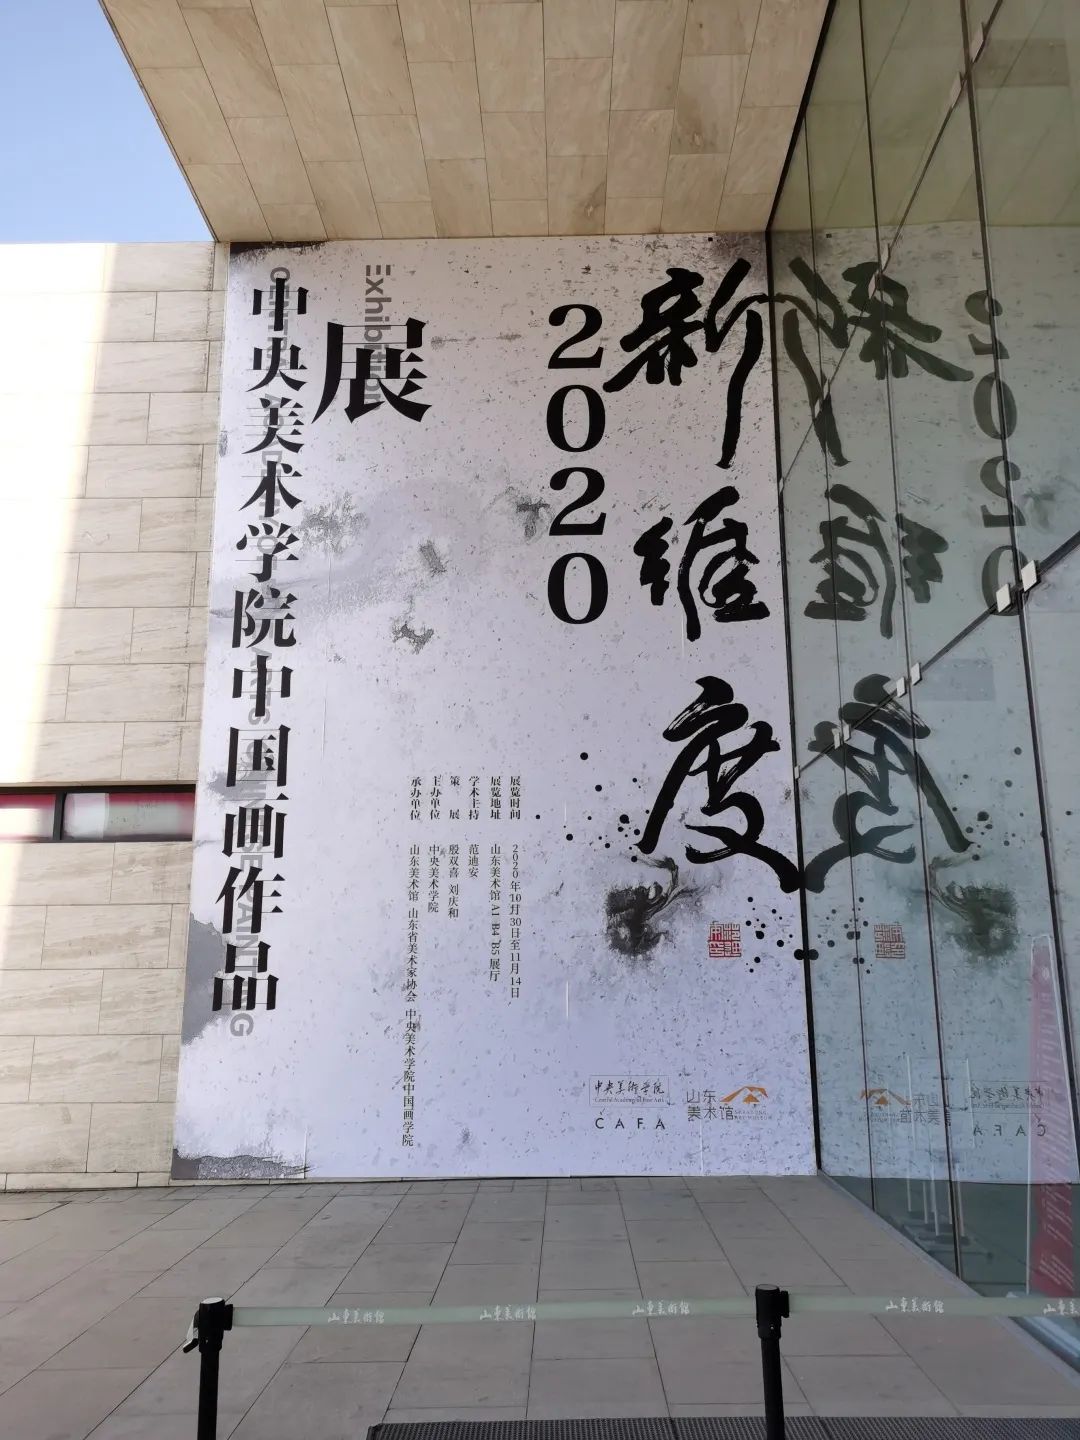 新维度
2020
中央美术学院中国画作品
展
Exhibition
展览时间 2020年10月30日至11月14日
展览地址 山东美术馆 A1 B4 B5 展厅
学术主持 范迪安
策展 殷双喜 刘庆和
主办单位 中央美术学院
承办单位 山东美术馆 山东省美术家协会 中央美术学院中国画学院
中央美術学院
CAFA
山东
美术馆
山東美術館
山東美術館
山東美術館
山東美術館